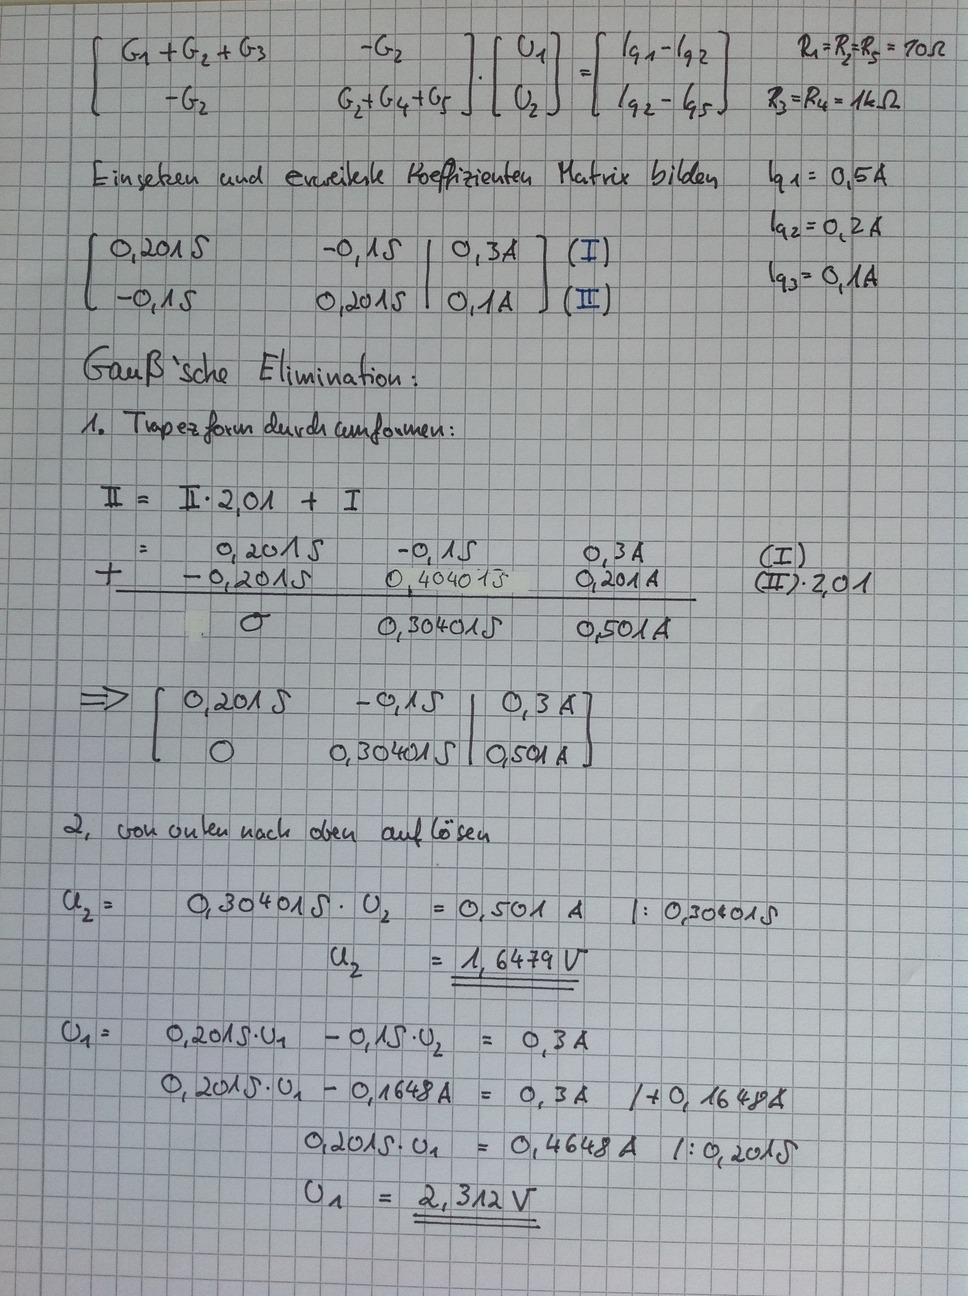 [ G₁ + G₂ + G₃ -G₂ ] · [ U₁ ] = [ Iq1 - Iq2 ] R₁ = R₂ = R₅ = 10Ω
[ -G₂ G₂ + G₄ + G₅ ] [ U₂ ] [ Iq2 - Iq5 ] R₃ = R₄ = 1kΩ
Einsetzen und erweiterte Koeffizienten Matrix bilden Iq1 = 0,5A
Iq2 = 0,2A
[ 0,201S -0,1S | 0,3A ] (I)
Iq3 = 0,1A
[ -0,1S 0,201S | 0,1A ] (II)
Gauß'sche Elimination:
1. Trapezform durch umformen:
II = II · 2,01 + I
= 0,201S -0,1S 0,3A (I)
+ -0,201S 0,40401S 0,201A (II) · 2,01
0 0,30401S 0,501A
⇒ [ 0,201S -0,1S | 0,3A ]
[ 0 0,30401S | 0,501A ]
2. von unten nach oben auflösen
U₂ = 0,30401S · U₂ = 0,501 A |: 0,30401S
U₂ = 1,6479 V
U₁ = 0,201S · U₁ - 0,1S · U₂ = 0,3A
0,201S · U₁ - 0,1648A = 0,3A | + 0,1648A
0,201S · U₁ = 0,4648A |: 0,201S
U₁ = 2,312 V